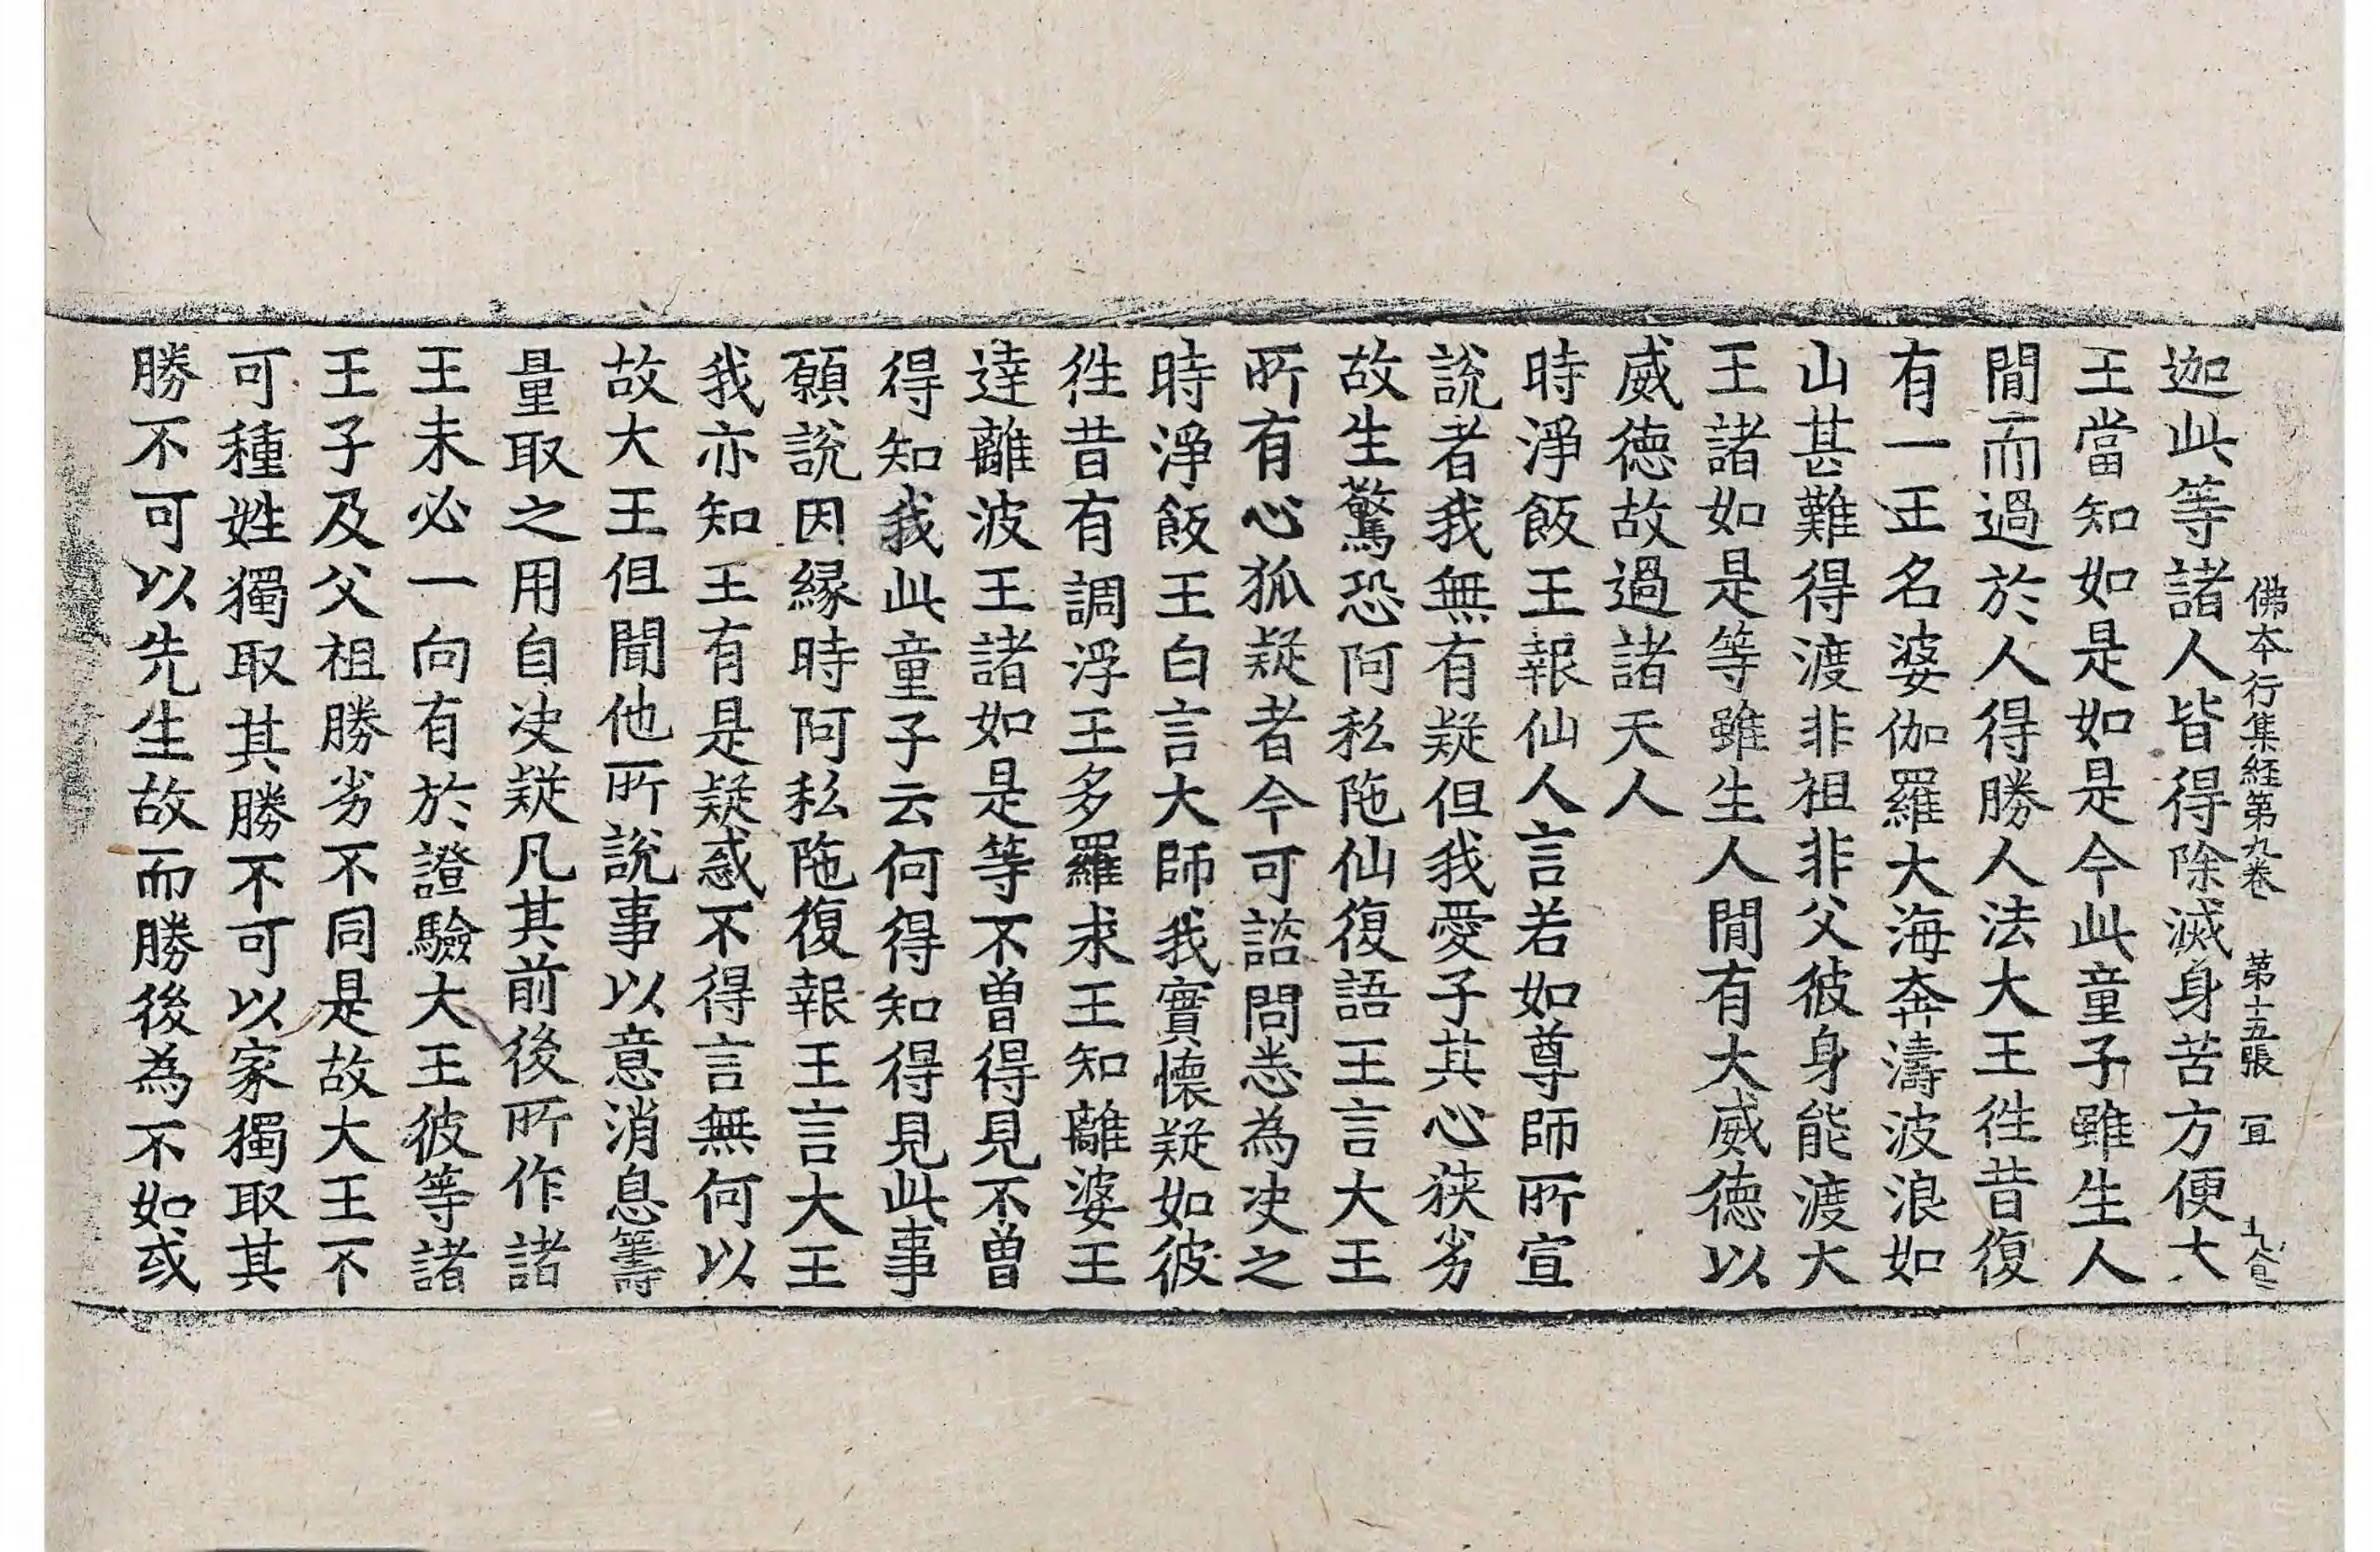 佛本行集経第九卷 第十五張 宜
迦此等諸人皆得除滅身苦方便大
王當知如是如是今此童子雖生人
間而過於人得勝人法大王徃昔復
有一王名婆伽羅大海奔濤波浪如
山甚難得渡非祖非父彼身能渡大
王諸如是等雖生人間有大威德以
威德故過諸天人
時淨飯王報仙人言若如尊師所宣
說者我無有疑但我愛子其心狹劣
故生驚恐阿私陁仙復語王言大王
所有心狐疑者今可諮問悉為决之
時淨飯王白言大師我實懷疑如彼
徃昔有調浮王多羅求王知離婆王
達離波王諸如是等不曾得見不曾
得知我此童子云何得知得見此事
願說因縁時阿私陁復報王言大王
我亦知王有是疑惑不得言無何以
故大王但聞他所說事以意消息籌
量取之用自决疑凡其前後所作諸
王未必一向有於證驗大王彼等諸
王子及父祖勝劣不同是故大王不
可種姓獨取其勝不可以家獨取其
勝不可以先生故而勝後為不如或